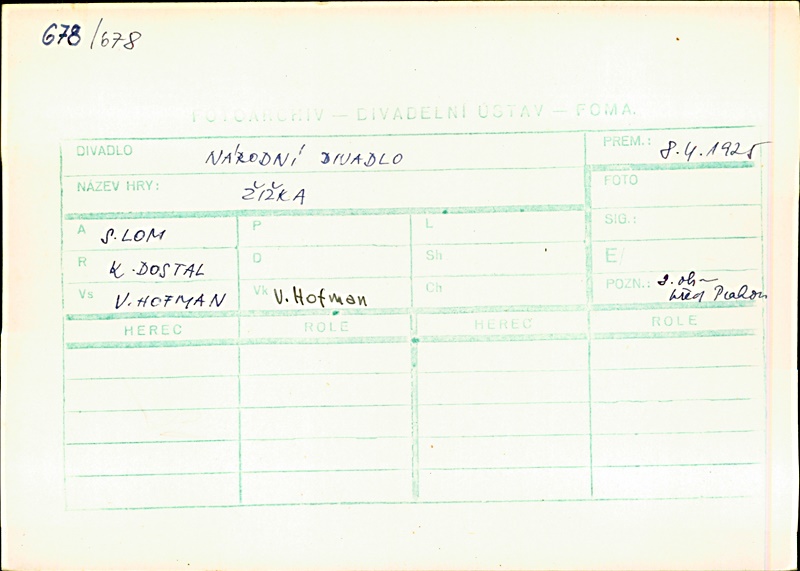 678/678
FOTOARCHIV – DIVADELNÍ ÚSTAV – FOMA.
DIVADLO NÁRODNÍ DIVADLO
PREM.: 8.4.1925
NÁZEV HRY: ŽIŽKA
FOTO
A S. LOM P L
SIG.:
R K. DOSTAL D Sh
E/
Vs V. HOFMAN Vk V. Hofman Ch
POZN.: 2. obr
před Prahou
HEREC ROLE HEREC ROLE